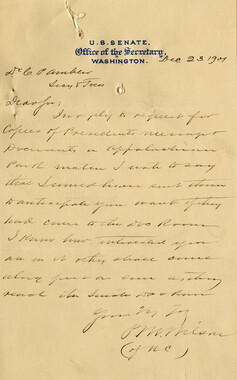 U.S. SENATE,
Office of the Secretary,
WASHINGTON.
Dec 23 1901
Dr C P Ambler
Secy & Treas
Dear Sir:
In reply to request for
Copies of Presidents message &
Documents on Appalachian
Park matter I write to say
that I would have sent them
to anticipate your want if they
had come to the Doc Room
I know how interested you
are in it others shall come
along just as soon as they
reach the Senate Doc Room
Yours Try
P M Wilson
(of N C)